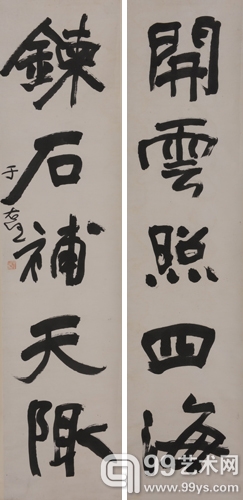 開雲照四海
鍊石補天陬
于右任
99艺术网
www.99ys.com